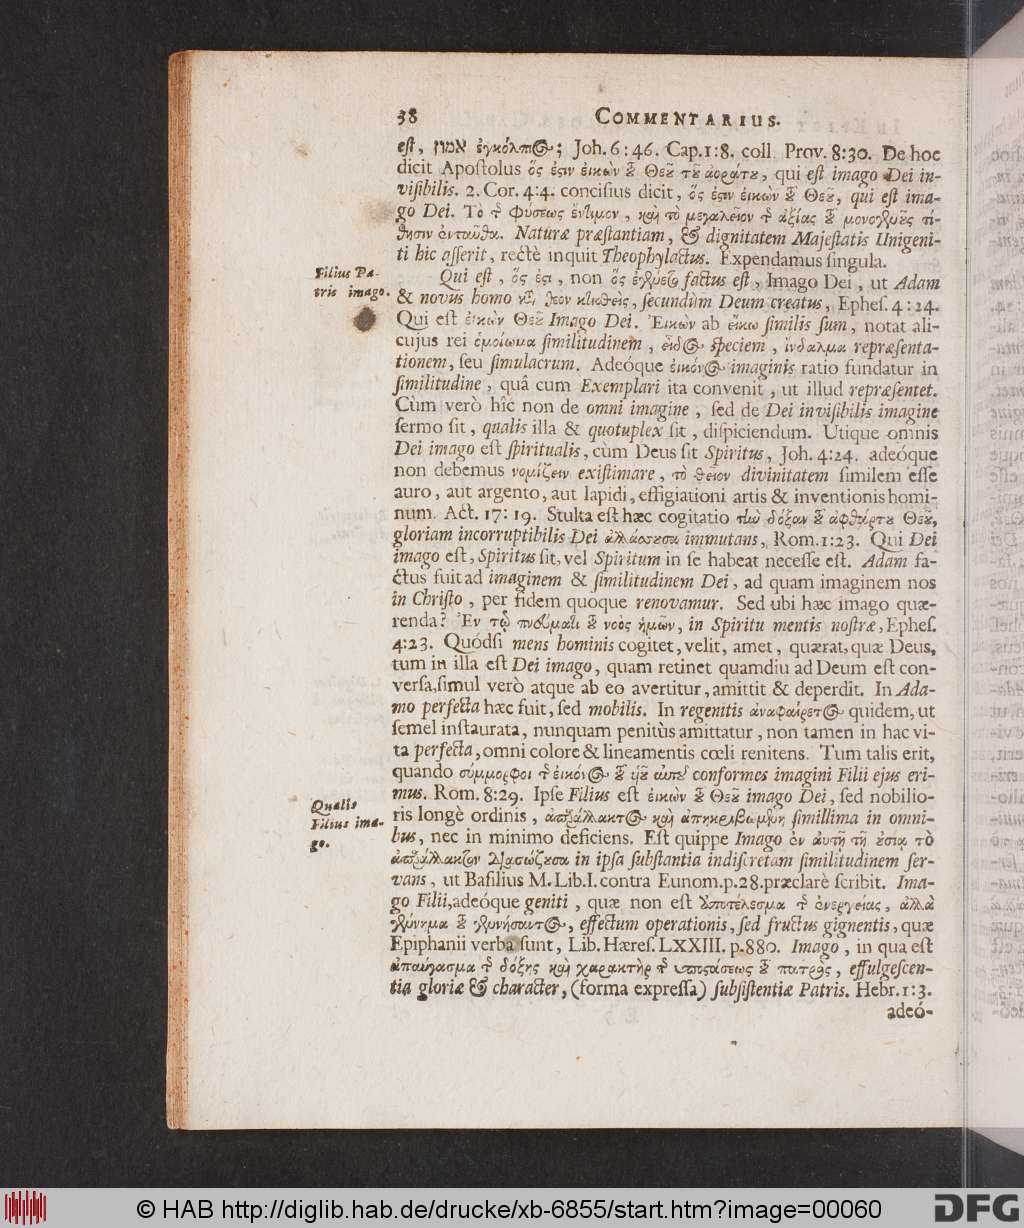 38 COMMENTARIUS.
est, אמון ἐγκόλπιος; Joh. 6:46. Cap. 1:8. coll. Prov. 8:30. De hoc
dicit Apostolus ὅς ἐστιν ἐικὼν τοῦ Θεοῦ τοῦ ἀοράτου, qui est imago Dei in-
visibilis. 2. Cor. 4:4. concisius dicit, ὅς ἐστιν ἐικὼν τοῦ Θεοῦ, qui est ima-
go Dei. Τὸ τῆς φύσεως ἔντιμον, καὶ τὸ μεγαλεῖον τῆς ἀξίας τοῦ μονογενοῦς τί-
θησιν ἐνταῦθα. Naturæ præstantiam, & dignitatem Majestatis Unigeni-
ti hic asserit, rectè inquit Theophylactus. Expendamus singula.
Filius Pa-
tris imago.
Qui est, ὅς ἐστι, non ὅς ἐγένετο factus est, Imago Dei, ut Adam
& novus homo κατὰ θεον κτισθεὶς, secundùm Deum creatus, Ephes. 4:24.
Qui est ἐικὼν Θεοῦ Imago Dei. Ἐικὼν ab εἴκω similis sum, notat ali-
cujus rei ὁμοίωμα similitudinem, εἶδος speciem, ἴνδαλμα repræsenta-
tionem, seu simulacrum. Adeóque ἐικόνος imaginis ratio fundatur in
similitudine, quâ cum Exemplari ita convenit, ut illud repræsentet.
Cùm verò hîc non de omni imagine, sed de Dei invisibilis imagine
sermo sit, qualis illa & quotuplex sit, dispiciendum. Utique omnis
Dei imago est spiritualis, cùm Deus sit Spiritus, Joh. 4:24. adeóque
non debemus νομίζειν existimare, τὸ θεῖον divinitatem similem esse
auro, aut argento, aut lapidi, effigiationi artis & inventionis homi-
num. Act. 17:19. Stulta est hæc cogitatio τὴν δόξαν τοῦ ἀφθάρτου Θεοῦ,
gloriam incorruptibilis Dei ἀλλάσσουσα immutans, Rom. 1:23. Qui Dei
imago est, Spiritus sit, vel Spiritum in se habeat necesse est. Adam fa-
ctus fuit ad imaginem & similitudinem Dei, ad quam imaginem nos
in Christo, per fidem quoque renovamur. Sed ubi hæc imago quæ-
renda? Ἐν τῷ πνεύματι τοῦ νοὸς ἡμῶν, in Spiritu mentis nostræ, Ephes.
4:23. Quódsi mens hominis cogitet, velit, amet, quærat, quæ Deus,
tum in illa est Dei imago, quam retinet quamdiu ad Deum est con-
versa, simul verò atque ab eo avertitur, amittit & deperdit. In Ada-
mo perfecta hæc fuit, sed mobilis. In regenitis ἀναφαίρετος quidem, ut
semel instaurata, nunquam penitùs amittatur, non tamen in hac vi-
ta perfecta, omni colore & lineamentis cœli renitens. Tum talis erit,
quando σύμμορφοι τῆς ἐικόνος τοῦ υἱοῦ αὐτοῦ conformes imagini Filii ejus eri-
mus. Rom. 8:29. Ipse Filius est ἐικὼν τοῦ Θεοῦ imago Dei, sed nobilio-
Qualis
Filius ima-
go.
ris longè ordinis, ἀπαράλλακτος καὶ ἀπηκριβωμένη simillima in omni-
bus, nec in minimo deficiens. Est quippe Imago ἐν ἀυτῇ τῇ ὀυσίᾳ τὸ
ἀπαράλλακτον διασώζουσα in ipsa substantia indiscretam similitudinem ser-
vans, ut Basilius M. Lib. I. contra Eunom. p. 28. præclarè scribit. Ima-
go Filii, adeóque geniti, quæ non est ὑποτέλεσμα τῆς ἐνεργείας, ἀλλὰ
γέννημα τοῦ γεννήσαντος, effectum operationis, sed fructus gignentis, quæ
Epiphanii verba sunt, Lib. Hæres. LXXIII. p. 880. Imago, in qua est
ἀπαύγασμα τῆς δόξης καὶ χαρακτὴρ τῆς ὑποστάσεως τοῦ πατρὸς, effulgescen-
tia gloriæ & character, (forma expressa) subsistentiæ Patris. Hebr. 1:3.
adeó-
© HAB http://diglib.hab.de/drucke/xb-6855/start.htm?image=00060
DFG